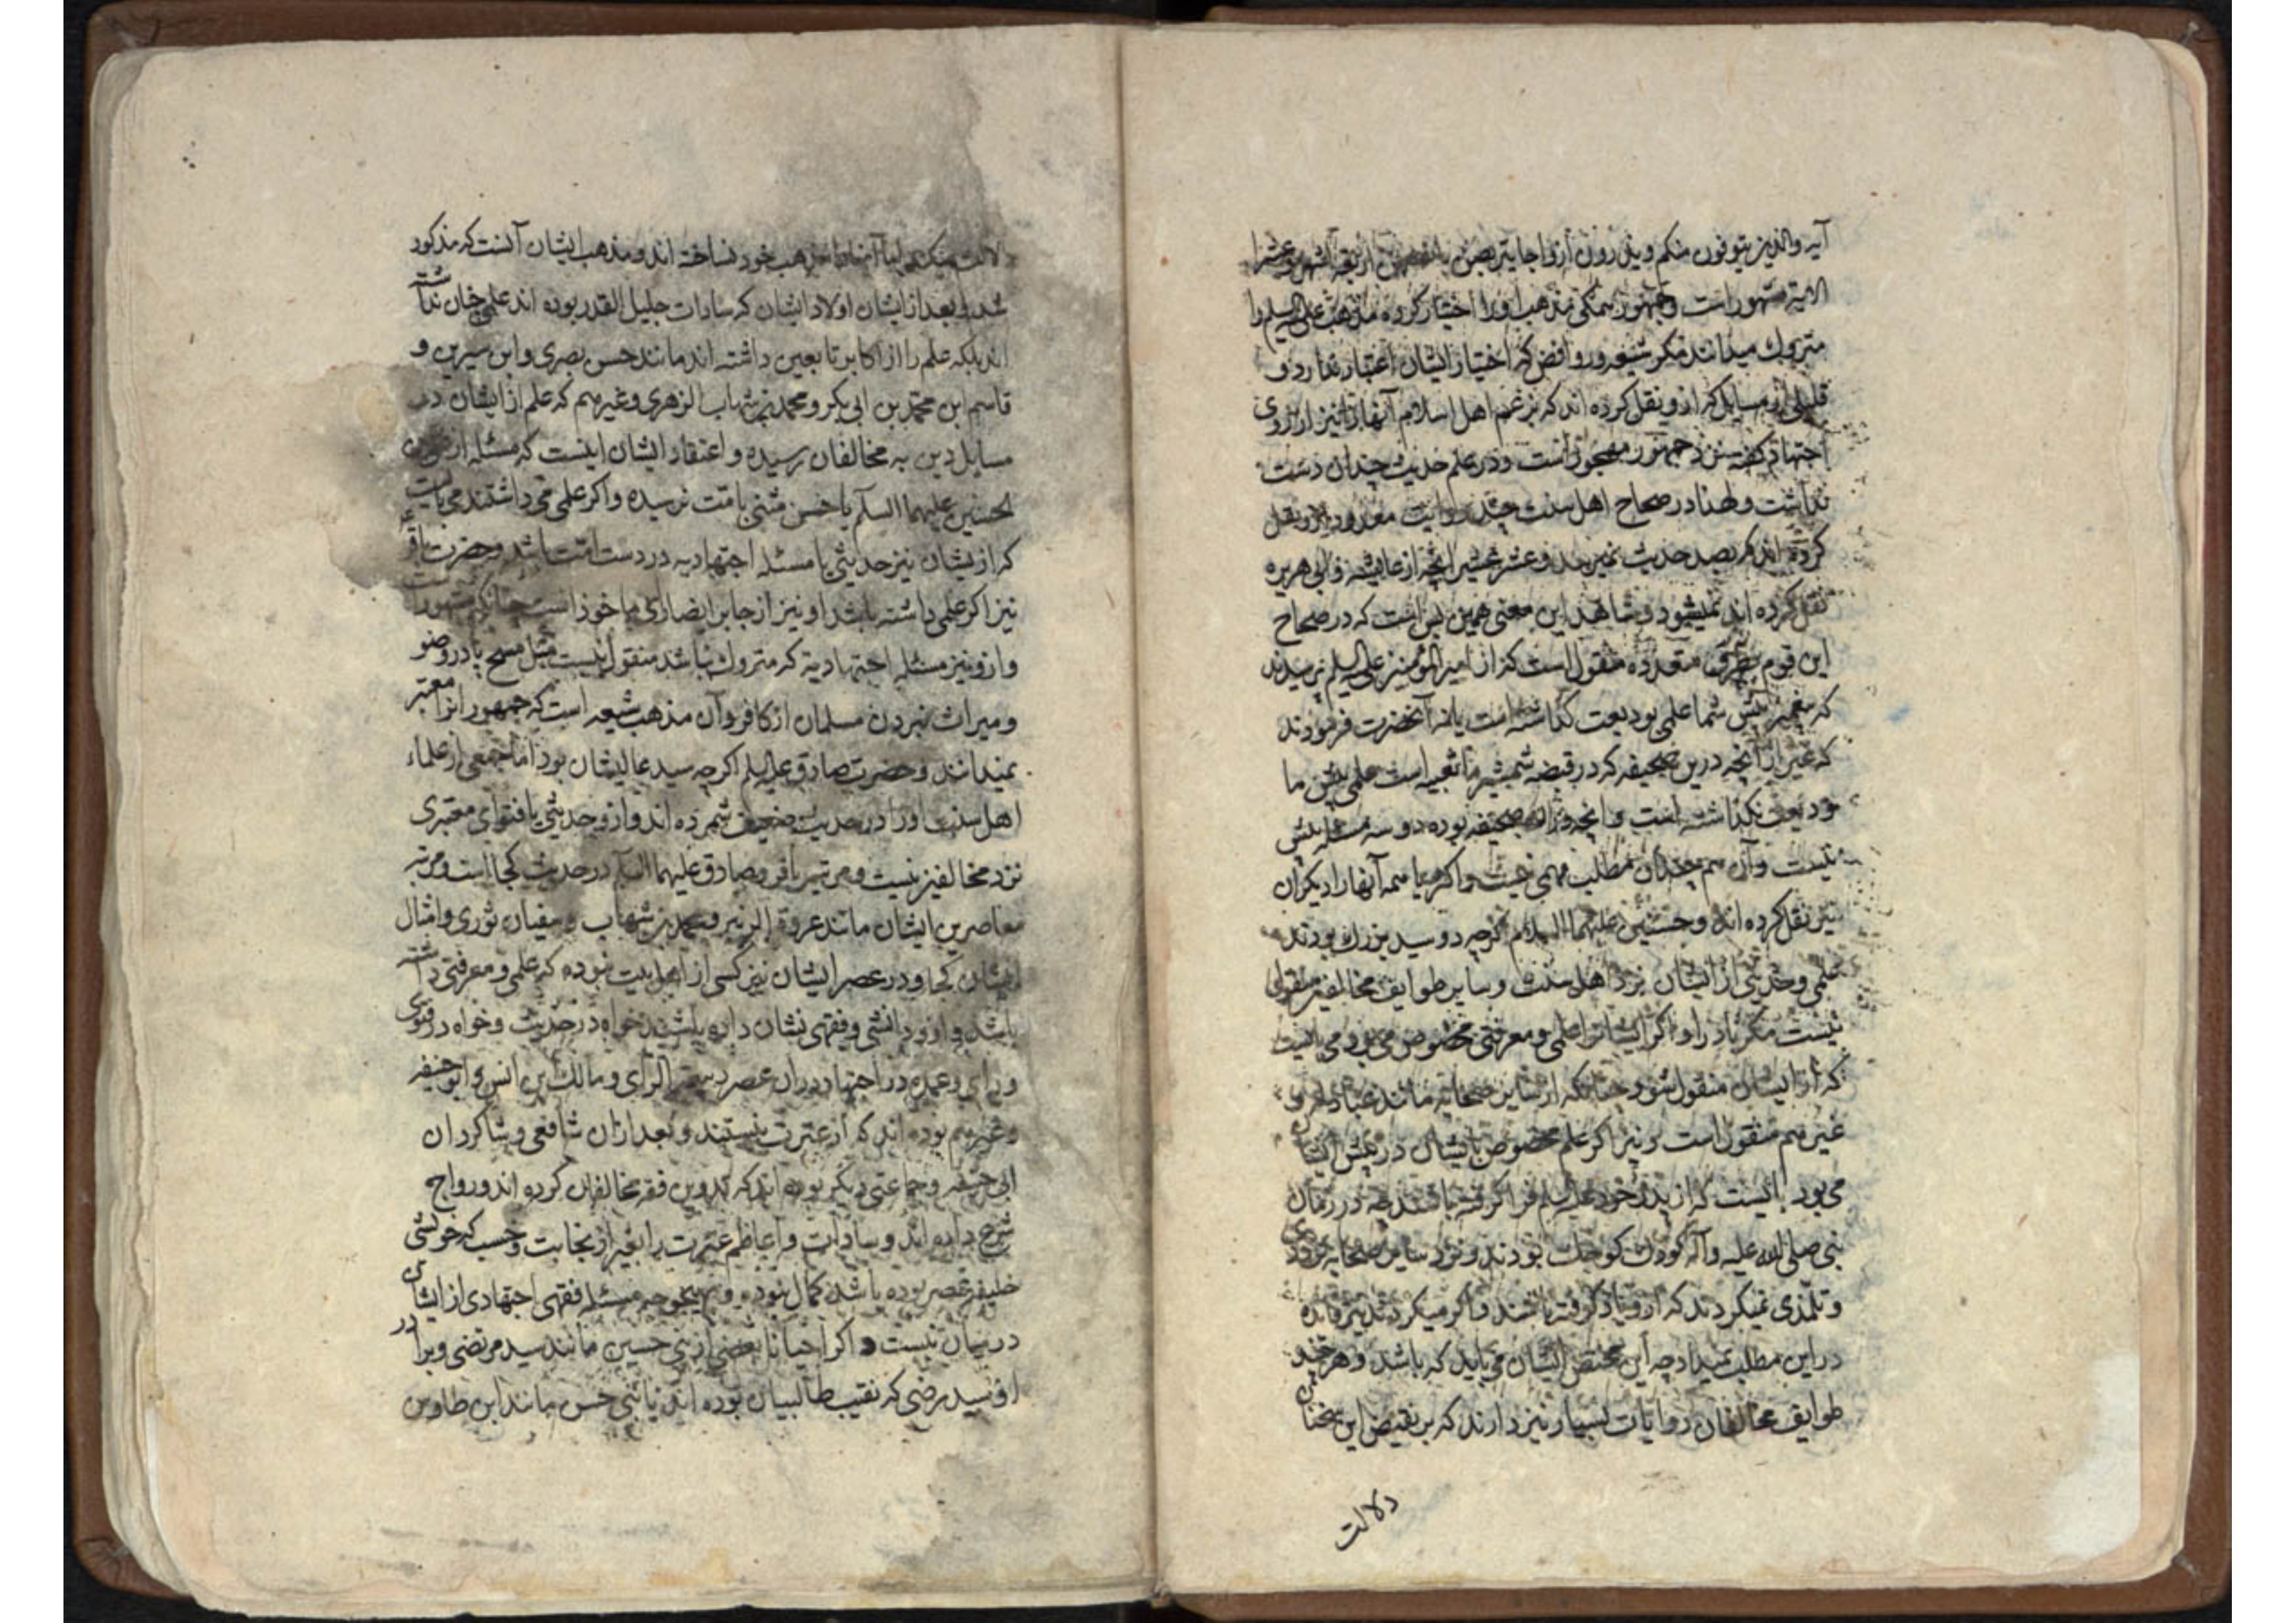 آیه والذین یتوفون منکم ویذرون ازواجا یتربصن بانفسهن اربعة اشهر وعشرا
الایة مشهور است وجمهور همکی مذهب او را اختیار کرده مذهب علی علیه السلم را
متروک میدانند مکر شیعه وروافض که اختیار ایشان اعتبار ندارد و
قلیلی از مسایل که ازو نقل کرده اند که بزعم اهل اسلام آنها را نیز از روی
اجتهاد کفته نزد جمهور مهجور است ودر علم حدیث چندان دست
نداشت ولهذا در صحاح اهل سنت چند روایت معدود ازو نقل
کرده اند که بصد حدیث نمیرسد وعشر عشیر آنچه از عایشه وابی هریره
نقل کرده اند نمیشود وشاهد این معنی همین بس است که در صحاح
این قوم بطرق متعدده منقول است که از امیر المؤمنین علیه السلم پرسیدند
که پیغمبر پیش شما علمی بودیعت کذاشته است یا نه آنحضرت فرمودند
که غیر از آنچه درین صحیفه که در قبضه شمشیر ما تعبیه است علمی پیش ما
ودیعت نکذاشته است وآنچه در آن صحیفه بوده دو سه مسئله بیش
نیست وآن هم چندان مطلب مهمی نیست واکثر یا همه آنها را دیکران
نیز نقل کرده اند وحسنین علیهما السلام اکرچه دو سید بزرک بودند
علمی وحدیثی از ایشان نزد اهل سنت وسایر طوایف مخالفین منقول
نیست مکر نادرا واکر ایشانرا علمی ومعرفتی مخصوص می بود می بایست
که از ایشان منقول شود چنانکه از سایر صحابه مانند عبادله و
غیرهم منقول است ونیز اکر علم مخصوص بایشان در پیش ایشان
می بود بایست که از پدر خود علیه السلم فرا کرفته باشند چه در زمان
نبی صلی الله علیه وآله کودک کوچک بودند ونزد سایر صحابه تردد
وتلمذی نمیکردند که ازو یاد کرفته باشند واکر میکردند نیز فایده
در این مطلب نمیداد چه این مختص ایشان می باید که باشد وهر چند
طوایف مخالفان روایات بسیار نیز دارند که بر نقیض این سخنان
دلالت
دلالت میکند لیکن آنها را مذهب خود نساخته اند ومذهب ایشان آنست که مذکور
شد وبعد از ایشان اولاد ایشان که سادات جلیل القدر بوده اند علمی چنان نداشته
اند بلکه علم را از اکابر تابعین داشته اند مانند حسن بصری وابن سیرین و
قاسم ابن محمد بن ابی بکر ومحمد بن شهاب الزهری وغیرهم که علم از ایشان در
مسایل دین به مخالفان رسیده واعتقاد ایشان اینست که مسئله از
حسنین علیهما السلم یا حسن مثنی بامت نرسیده واکر علمی می داشتند می بایست
که ازیشان نیز حدیثی یا مسئله اجتهادیه در دست امت باشد وحضرت باقر ع
نیز اکر علمی داشته باشد او نیز از جابر انصاری ماخوذ است چنانکه مشهور است
وازو نیز مسئله اجتهادیه که متروک نباشد منقول نیست مثل مسح پا در وضو
ومیراث نبردن مسلمان از کافر وآن مذهب شیعه است که جمهور آنرا معتبر
نمیدانند وحضرت صادق علیه السلم اکرچه سید عالیشان بود اما جمعی از علماء
اهل سنت او را در حدیث ضعیف شمرده اند وازو حدیثی یا فتوای معتبری
نزد مخالفین نیست ومرتبه باقر وصادق علیهما السلم در حدیث کجا است ومرتبه
معاصرین ایشان مانند عروة الزبیر ومحمد بن شهاب وسفیان ثوری وامثال
ایشان کجا ودر عصر ایشان نیز کسی از اهل بیت نبوده که علمی ومعرفتی داشته
باشد وازو دانشی وفقهی نشان داده باشند خواه در حدیث وخواه در فتوی
ورای وعمده در اجتهاد در آن عصر ربیعة الرای ومالک بن انس وابو حنیفه
وغیرهم بوده اند که از عترت نیستند وبعد از آن شافعی وشاکردان
ابی حنیفه وجماعتی دیکر بوده اند که تدوین فقه مخالفان کرده اند ورواج
شرع داده اند وسادات واعاظم عترت را بغیر از نجابت وحسب که خویشی
خلیفه عصر بوده باشد کمال نبوده وبهیچوجه مسئله فقهی اجتهادی از ایشان
در میان نیست واکر احیانا بعضی از بنی حسین مانند سید مرتضی وبرادر
او سید رضی که نقیب طالبیان بوده اند یا بنی حسن مانند ابن طاوس